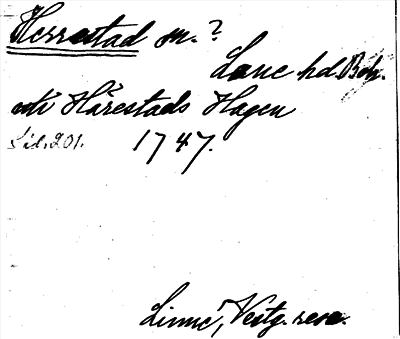 Herrestad sn.?
Lane hd. Boh.
uti Härestads Hagen
Sid. 201. 1747.
Linné, Vestg. resa.